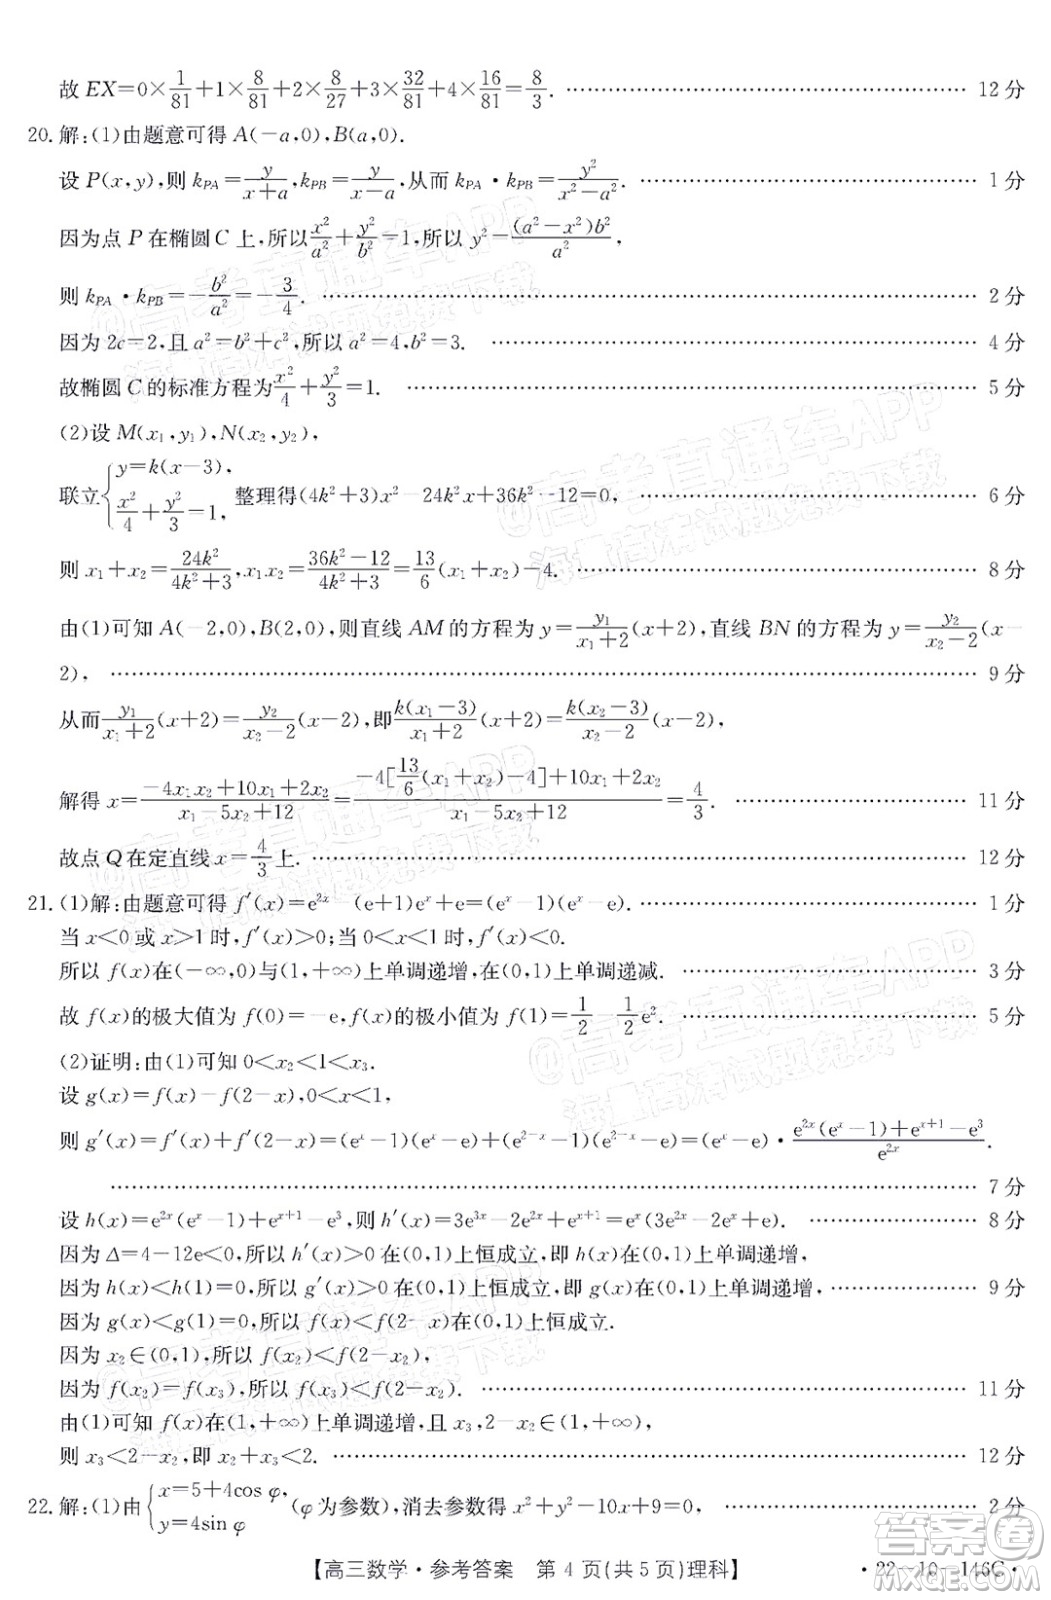 故 EX=0×1/81+1×8/81+2×8/27+3×32/81+4×16/81=8/3. 12分
20. 解:(1)由题意可得 A(-a,0),B(a,0).
设 P(x,y),则 k_PA=y/(x+a),k_PB=y/(x-a),从而 k_PA·k_PB=y²/(x²-a²). 1分
因为点 P 在椭圆 C 上,所以 x²/a²+y²/b²=1,所以 y²=(a²-x²)b²/a²,
则 k_PA·k_PB=-b²/a²=-3/4. 2分
因为 2c=2,且 a²=b²+c²,所以 a²=4,b²=3. 4分
故椭圆 C 的标准方程为 x²/4+y²/3=1. 5分
(2)设 M(x₁,y₁),N(x₂,y₂),
联立{y=k(x-3), x²/4+y²/3=1, 整理得(4k²+3)x²-24k²x+36k²-12=0, 6分
则 x₁+x₂=24k²/(4k²+3),x₁x₂=(36k²-12)/(4k²+3)=13/6(x₁+x₂)-4. 8分
由(1)可知 A(-2,0),B(2,0),则直线 AM 的方程为 y=y₁/(x₁+2)(x+2),直线 BN 的方程为 y=y₂/(x₂-2)(x-
2), 9分
从而 y₁/(x₁+2)(x+2)=y₂/(x₂-2)(x-2),即 k(x₁-3)/(x₁+2)(x+2)=k(x₂-3)/(x₂-2)(x-2),
解得 x=(-4x₁x₂+10x₁+2x₂)/(x₁-5x₂+12)=(-4[13/6(x₁+x₂)-4]+10x₁+2x₂)/(x₁-5x₂+12)=4/3. 11分
故点 Q 在定直线 x=4/3 上. 12分
21. (1)解:由题意可得 f′(x)=e²ˣ-(e+1)eˣ+e=(eˣ-1)(eˣ-e). 1分
当 x<0 或 x>1 时,f′(x)>0;当 0<x<1 时,f′(x)<0.
所以 f(x)在(-∞,0)与(1,+∞)上单调递增,在(0,1)上单调递减. 3分
故 f(x)的极大值为 f(0)=-e,f(x)的极小值为 f(1)=1/2-1/2e². 5分
(2)证明:由(1)可知 0<x₂<1<x₃.
设 g(x)=f(x)-f(2-x),0<x<1,
则 g′(x)=f′(x)+f′(2-x)=(eˣ-1)(eˣ-e)+(e²⁻ˣ-1)(e²⁻ˣ-e)=(eˣ-e)·(e²ˣ(eˣ-1)+eˣ⁺¹-e³)/e²ˣ.
7分
设 h(x)=e²ˣ(eˣ-1)+eˣ⁺¹-e³,则 h′(x)=3e³ˣ-2e²ˣ+eˣ⁺¹=eˣ(3e²ˣ-2eˣ+e). 8分
因为 Δ=4-12e<0,所以 h′(x)>0 在(0,1)上恒成立,即 h(x)在(0,1)上单调递增,
因为 h(x)<h(1)=0,所以 g′(x)>0 在(0,1)上恒成立,即 g(x)在(0,1)上单调递增, 9分
因为 g(x)<g(1)=0,所以 f(x)<f(2-x)在(0,1)上恒成立.
因为 x₂∈(0,1),所以 f(x₂)<f(2-x₂),
因为 f(x₂)=f(x₃),所以 f(x₃)<f(2-x₂). 11分
由(1)可知 f(x)在(1,+∞)上单调递增,且 x₃,2-x₂∈(1,+∞),
则 x₃<2-x₂,即 x₂+x₃<2. 12分
22. 解:(1)由{x=5+4cos φ, y=4sin φ (φ 为参数),消去参数得 x²+y²-10x+9=0, 2分
【高三数学·参考答案 第 4 页(共 5 页)理科】
·22-10-146C·
@高考直通车APP
海量高清试题免费下载
@高考直通车APP
海量高清试题免费下载
@高考直通车APP
海量高清试题免费下载
@高考直通车APP
海量高清试题免费下载
@高考直通车APP
海量高清试题免费下载
答案圈
MXQE.COM